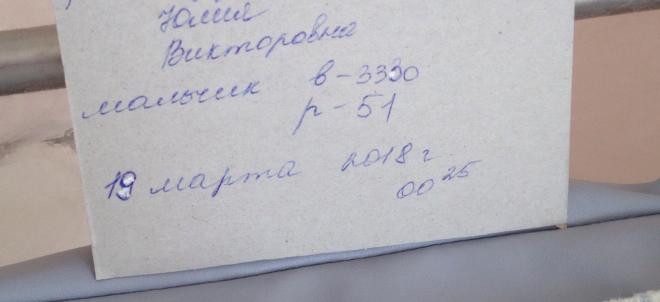 Юлия
Викторовна
мальчик в-3330
р-51
19 марта 2018 г
00 25